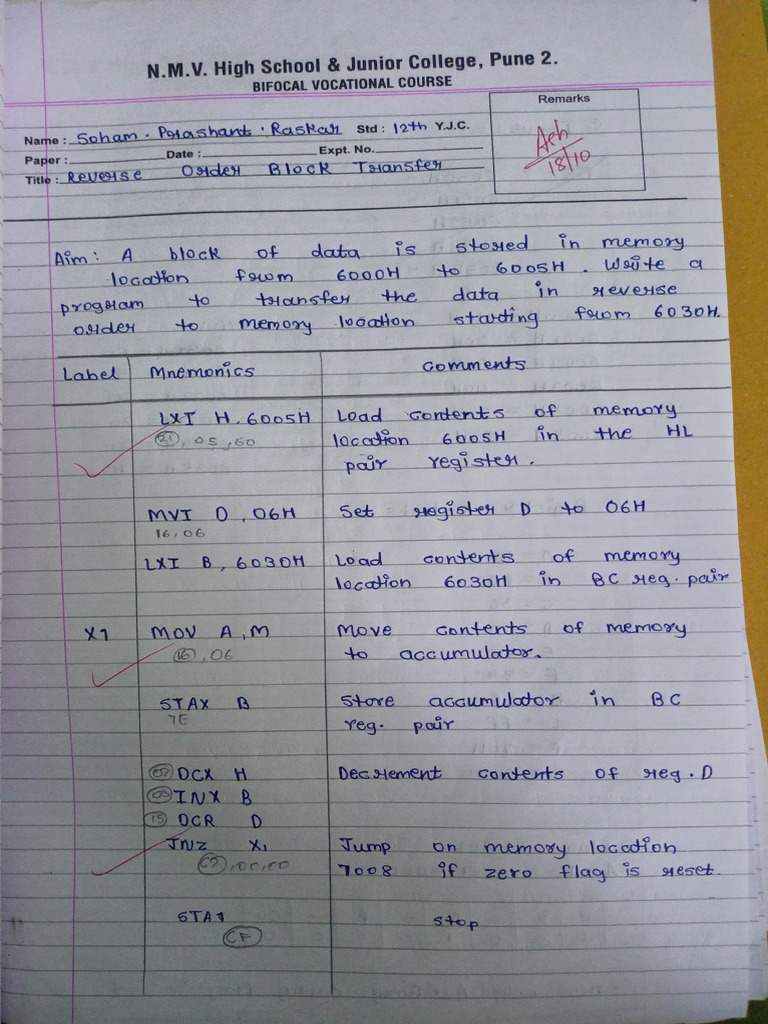 N.M.V. High School & Junior College, Pune 2.
BIFOCAL VOCATIONAL COURSE
Remarks
Name : Soham . Prashant . Raskar Std : 12th Y.J.C.
Paper : Date : Expt. No.
18/10
Title : Reverse Order Block Transfer
Aim: A block of data is stored in memory
location from 6000H to 6005H. Write a
program to transfer the data in reverse
order to memory location starting from 6030H.
Label Mnemonics Comments
LXI H, 6005H Load contents of memory
21, 05, 60 location 6005H in the HL
pair register.
MVI D, 06H Set register D to 06H
16, 06
LXI B, 6030H Load contents of memory
location 6030H in BC reg. pair
X1 MOV A, M Move contents of memory
16, 06 to accumulator.
STAX B Store accumulator in BC
7E reg. pair
02 DCX H Decrement contents of reg. D
INX B
15 DCR D
JNZ X1 Jump on memory location
00, 00 7008 if zero flag is reset.
stop
CF